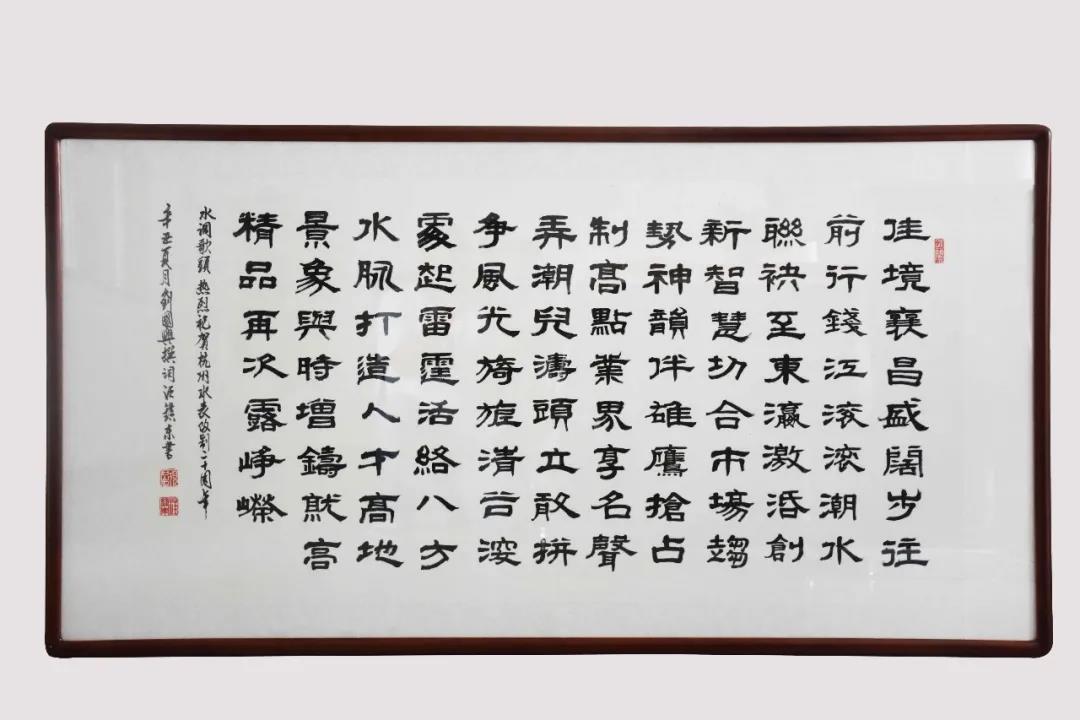 佳境襄昌盛闊步往
前行錢江滚滚潮水
聯袂至東瀛激活創
新智慧切合市場趨
勢神韻伴雄鷹搶占
制高點業界享名聲
弄潮兒濤頭立敢拼
争風光旖旎清谷深
處起雷霆活絡八方
水脈打造人才高地
景象與時增鑄就高
精品再次露崢嶸
水调歌頭 热烈祝賀杭州水表改制二十周年
辛丑夏月 國興撰词 書